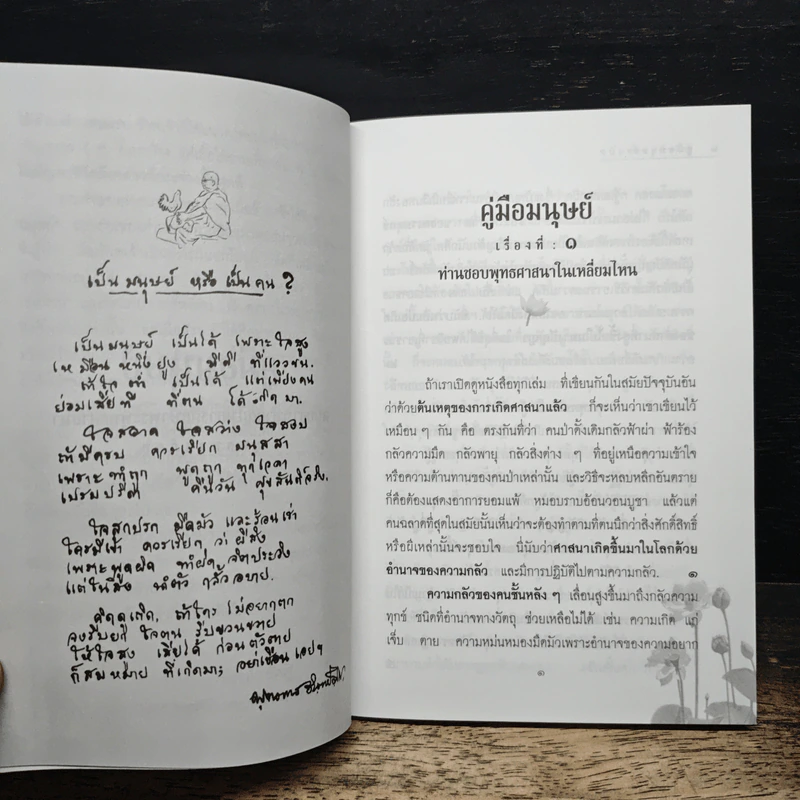 เป็นมนุษย์ หรือ เป็นคน ?
เป็นมนุษย์ เป็นได้ เพราะใจสูง
เหมือนหนึ่งยูง มีดี ที่แววขน.
ถ้าใจต่ำ เป็นได้ แต่เพียงคน
ย่อมเสียที ที่ตน ได้เกิดมา.
ใจสอาด ใจสว่าง ใจสงบ
ถ้ามีครบ ควรเรียก มนุสสา
เพราะทำถูก พูดถูก ทุกเวลา
เปรมปรีดา คืนวัน สุขสันติ์จริง.
ใจสกปรก มืดมัว และร้อนเร่า
ใครมีเข้า ควรเรียก ว่าผีสิง
เพราะพูดผิด ทำผิด จิตประวิง
แต่ในสิ่ง นำตัว กลั้วอบาย.
คิดดูเถิด, ถ้าใคร ไม่อยากตก
จงรีบยก ใจตน รีบขวนขวาย
ให้ใจสูง เสียได้ ก่อนตัวตาย
ก็สมหมาย ที่เกิดมา; อย่าเชือนเอยฯ
พุทธทาส อินทปัญโญ
คู่มือมนุษย์
เรื่องที่ : ๑
ท่านชอบพุทธศาสนาในเหลี่ยมไหน
ถ้าเราเปิดดูหนังสือทุกเล่ม ที่เขียนกันในสมัยปัจจุบันอัน
ว่าด้วยต้นเหตุของการเกิดศาสนาแล้ว ก็จะเห็นว่าเขาเขียนไว้
เหมือน ๆ กัน คือ ตรงกันที่ว่า คนป่าดั้งเดิมกลัวฟ้าผ่า ฟ้าร้อง
กลัวความมืด กลัวพายุ กลัวสิ่งต่าง ๆ ที่อยู่เหนือความเข้าใจ
หรือความต้านทานของคนป่าเหล่านั้น และวิธีจะหลบหลีกอันตราย
ก็คือต้องแสดงอาการยอมแพ้ หมอบราบอ้อนวอนบูชา แล้วแต่
คนฉลาดที่สุดในสมัยนั้นเห็นว่าจะต้องทำตามที่ตนนึกว่าสิ่งศักดิ์สิทธิ์
หรือผีเหล่านั้นจะชอบใจ นี่นับว่าศาสนาเกิดขึ้นมาในโลกด้วย
อำนาจของความกลัว และมีการปฏิบัติไปตามความกลัว. ๑
ความกลัวของคนชั้นหลัง ๆ เลื่อนสูงขึ้นมาถึงกลัวความ
ทุกข์ ชนิดที่อำนาจทางวัตถุ ช่วยเหลือไม่ได้ เช่น ความเกิด แก่
เจ็บ ตาย ความหม่นหมองมืดมัวเพราะอำนาจของความอยาก
๑